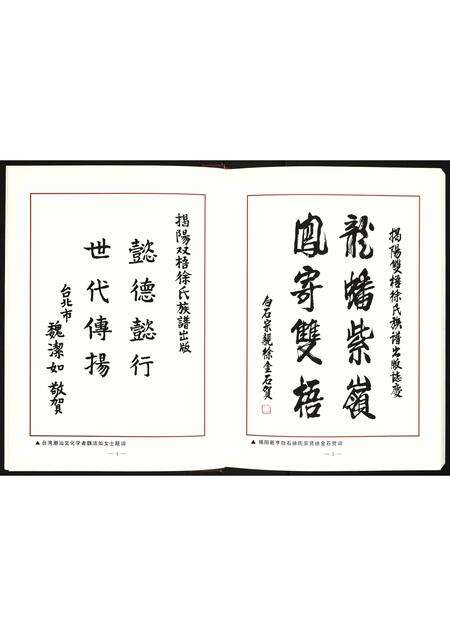 揭陽雙梧徐氏族譜出版誌慶
龍蟠紫嶺
鳳寄雙梧
白石宗親徐金石賀
▲揭陽新亨白石徐氏宗贤徐金石贺词
— 5 —
揭陽双梧徐氏族譜出版
懿德懿行
世代傳揚
台北市
魏潔如敬賀
▲台湾潮汕文化学者魏洁如女士题词
— 4 —